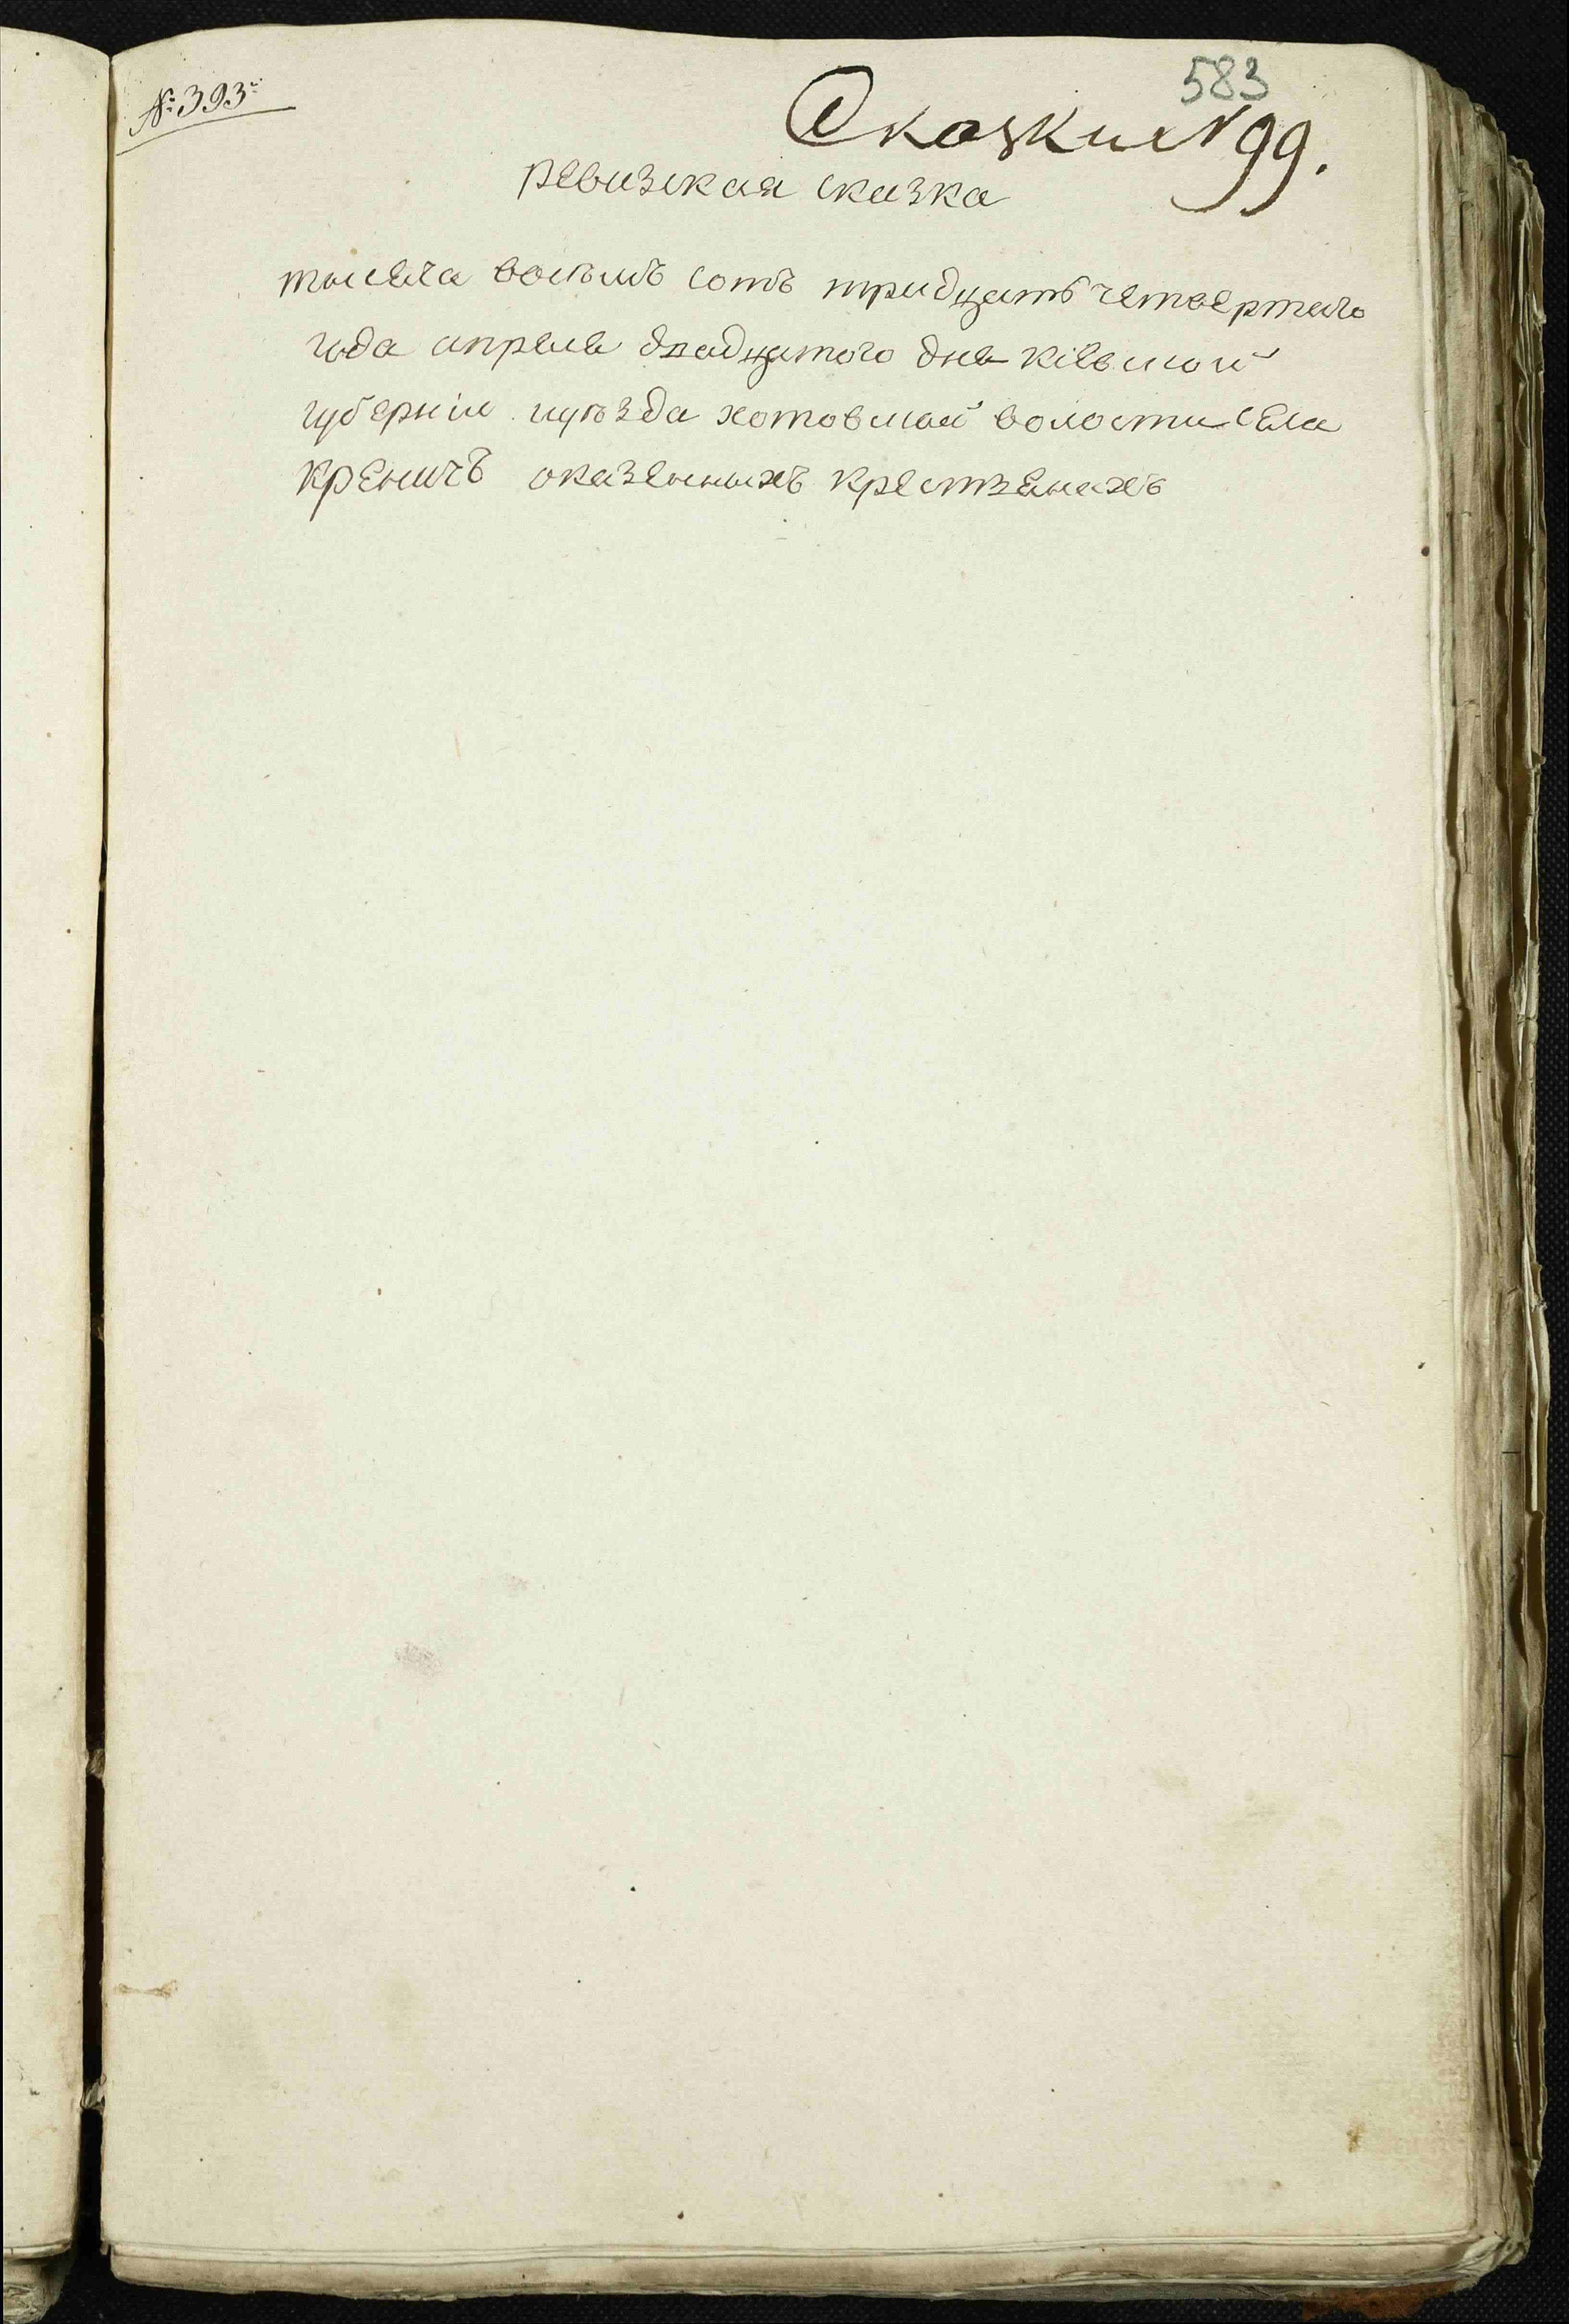 583
№ 393
Сказки № 99.
ревизская сказка
тысяча восѣмъ сотъ тридцать четвертаго
года апреля двадцатого дня кіевской
губерніи иуѣзда хотовской волости села
Креничъ оказенныхъ крестьянахъ